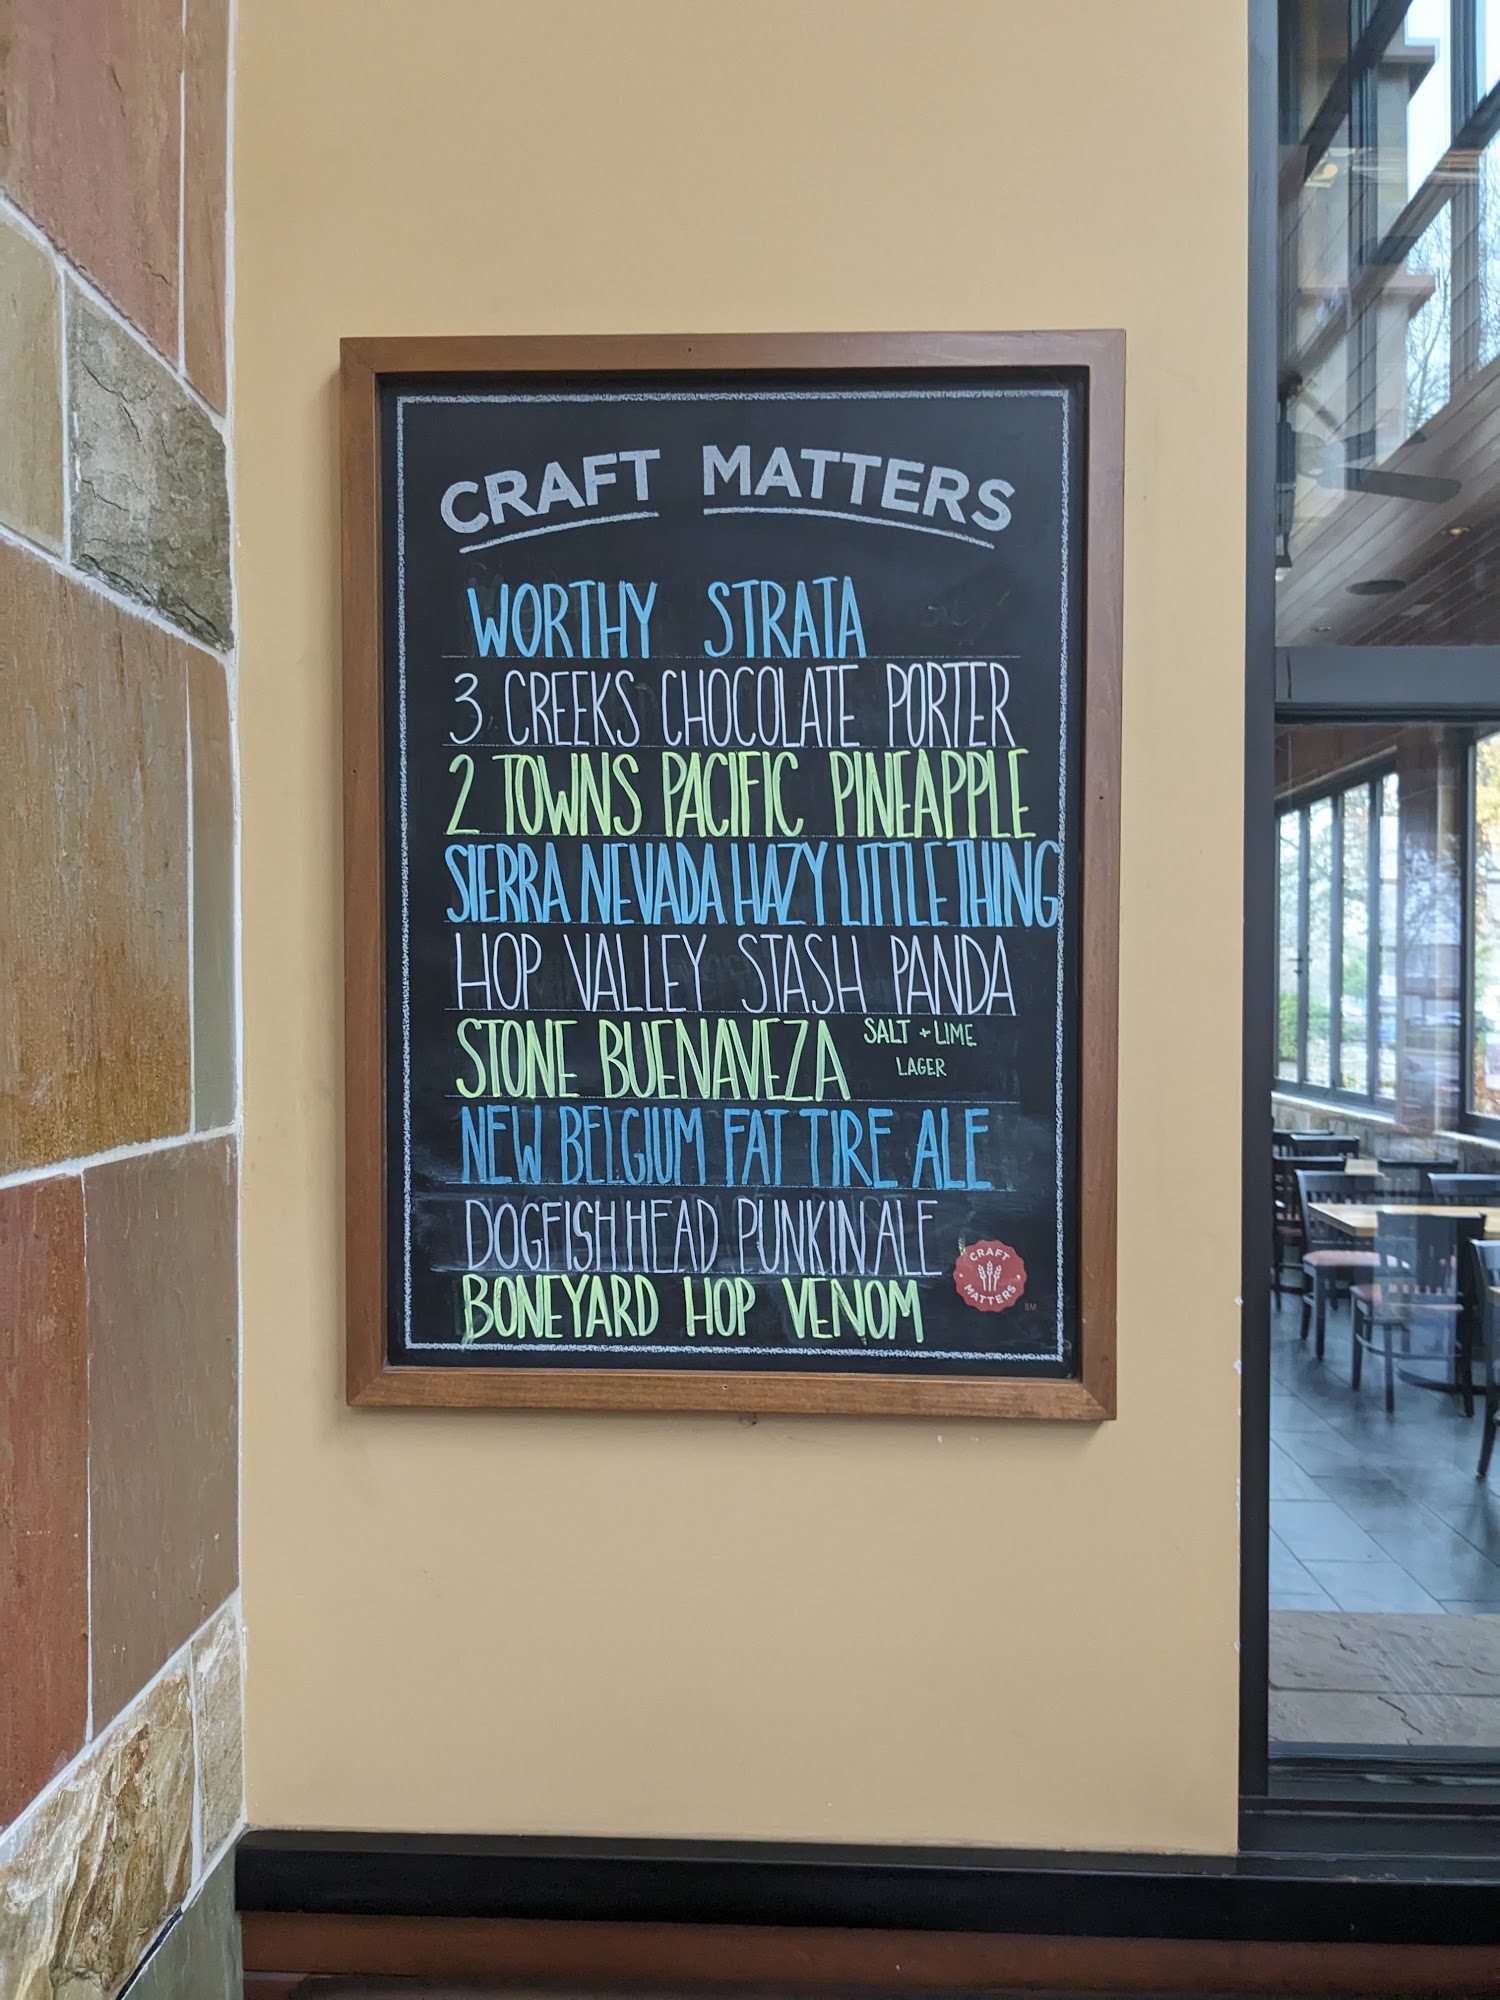 CRAFT MATTERS
WORTHY STRATA
3 CREEKS CHOCOLATE PORTER
2 TOWNS PACIFIC PINEAPPLE
SIERRA NEVADA HAZY LITTLE THING
HOP VALLEY STASH PANDA
STONE BUENAVEZA SALT + LIME
LAGER
NEW BELGIUM FAT TIRE ALE
DOGFISH HEAD PUNKIN ALE
CRAFT
MATTERS
SM
BONEYARD HOP VENOM